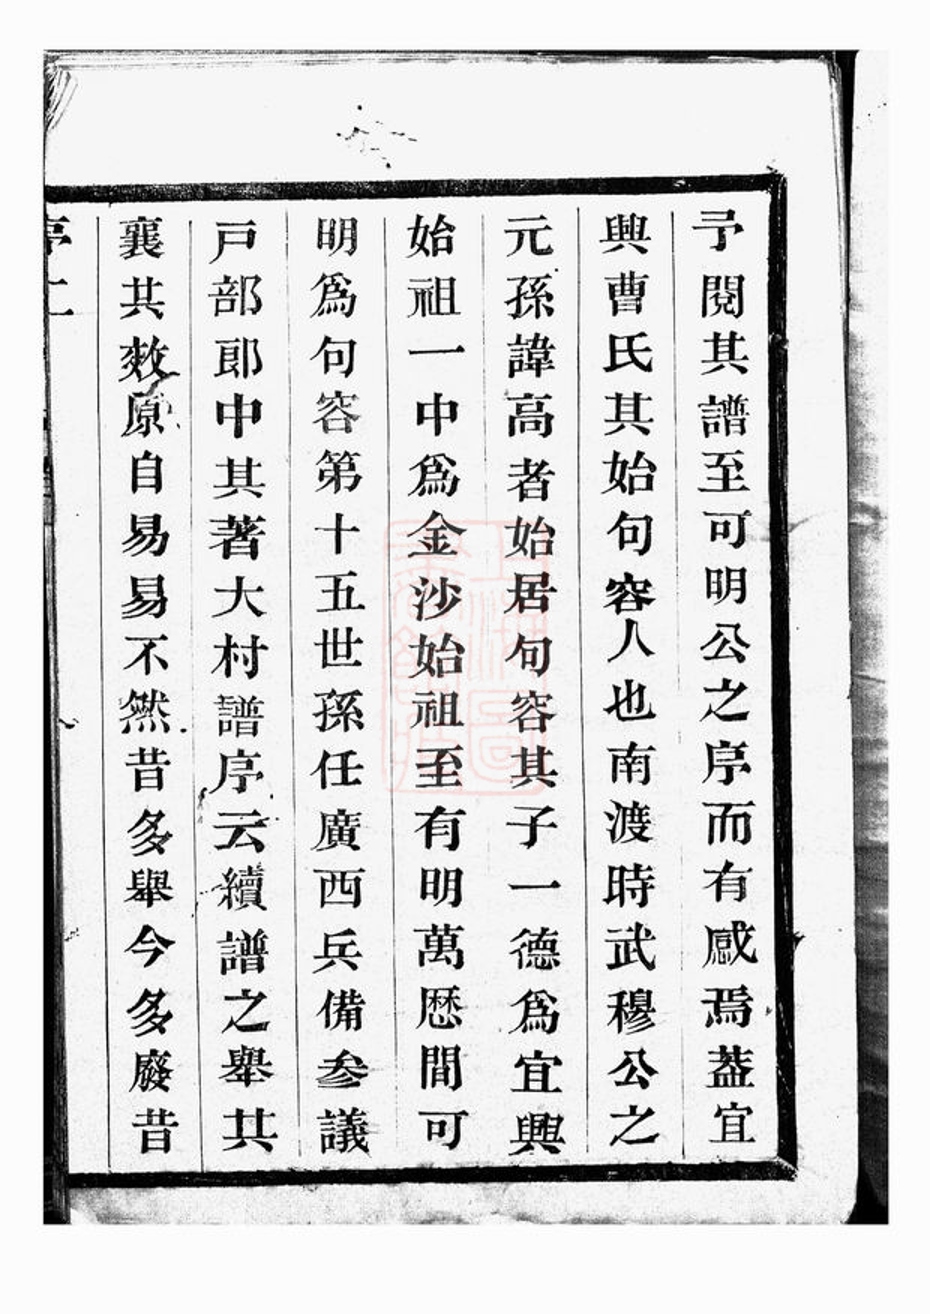 予閱其譜至可明公之序而有感焉葢宜
興曹氏其始句容人也南渡時武穆公之
元孫諱高者始居句容其子一德爲宜興
始祖一中爲金沙始祖至有明萬歷間可
明爲句容第十五世孫任廣西兵備參議
戸部郎中其著大村譜序云續譜之舉其
襄其效原自易易不然昔多舉今多廢昔